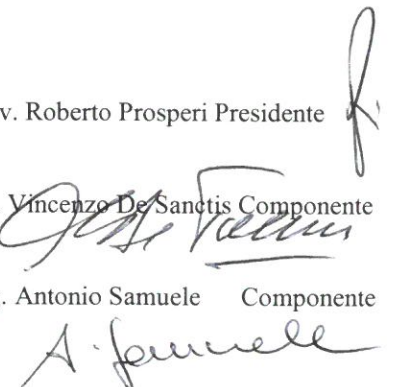 v. Roberto Prosperi Presidente
Vincenzo De Sanctis Componente
. Antonio Samuele Componente
A. Samuele